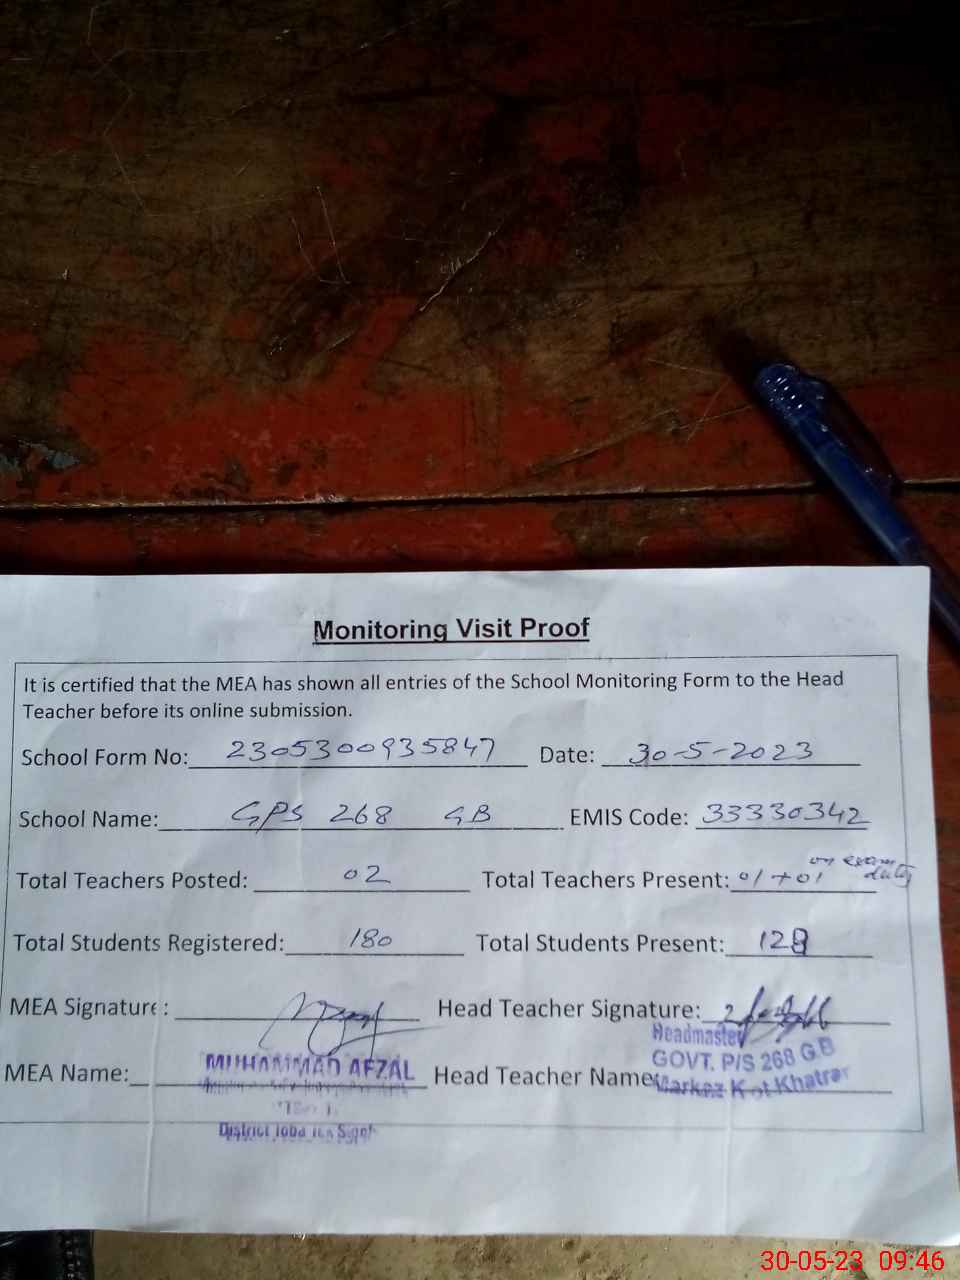 Monitoring Visit Proof
It is certified that the MEA has shown all entries of the School Monitoring Form to the Head
Teacher before its online submission.
School Form No: 2305300935847 Date: 30-5-2023
School Name: GPS 268 GB EMIS Code: 33330342
on exam
Total Teachers Posted: 02 Total Teachers Present: 01+01 duty
Total Students Registered: 180 Total Students Present: 128
MEA Signature: Head Teacher Signature:
Headmaster
MUHAMMAD AFZAL GOVT. P/S 268 GB
MEA Name: Head Teacher Name: Markaz Kot Khatran
District Toba Tek Singh
30-05-23 09:46